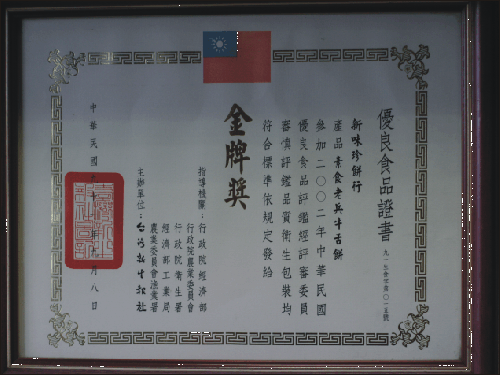 優良食品證書
新味珍餅行
產品 素食老兵牛舌餅
參加二○○二年中華民國
優良食品評鑑經評審委員
審慎評鑑品質衛生包裝均
符合標準依規定發給
金牌獎
指導機關：行政院經濟部
行政院農業委員會
行政院衛生署
經濟部工業局
農業委員會漁業署
主辦單位：台灣新生報社
中華民國
月八日